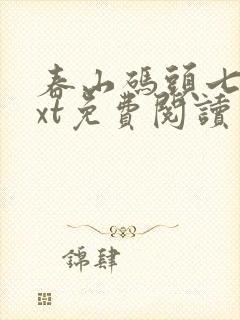 春山碼頭七
xt免費閱讀
錦肆